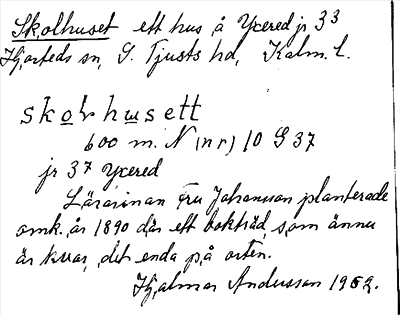 Skolhuset ett hus å Yxered jr 33
Hjorteds sn, S. Tjusts hd, Kalm. l.
skolhusett
600 m. N (nr) 10 S 37
jr 37 Yxered
Lärarinnan Fru Johansson planterade
omk. år 1890 där ett bokträd, som ännu
är kvar, det enda på orten.
Hjalmar Andersson 1952.